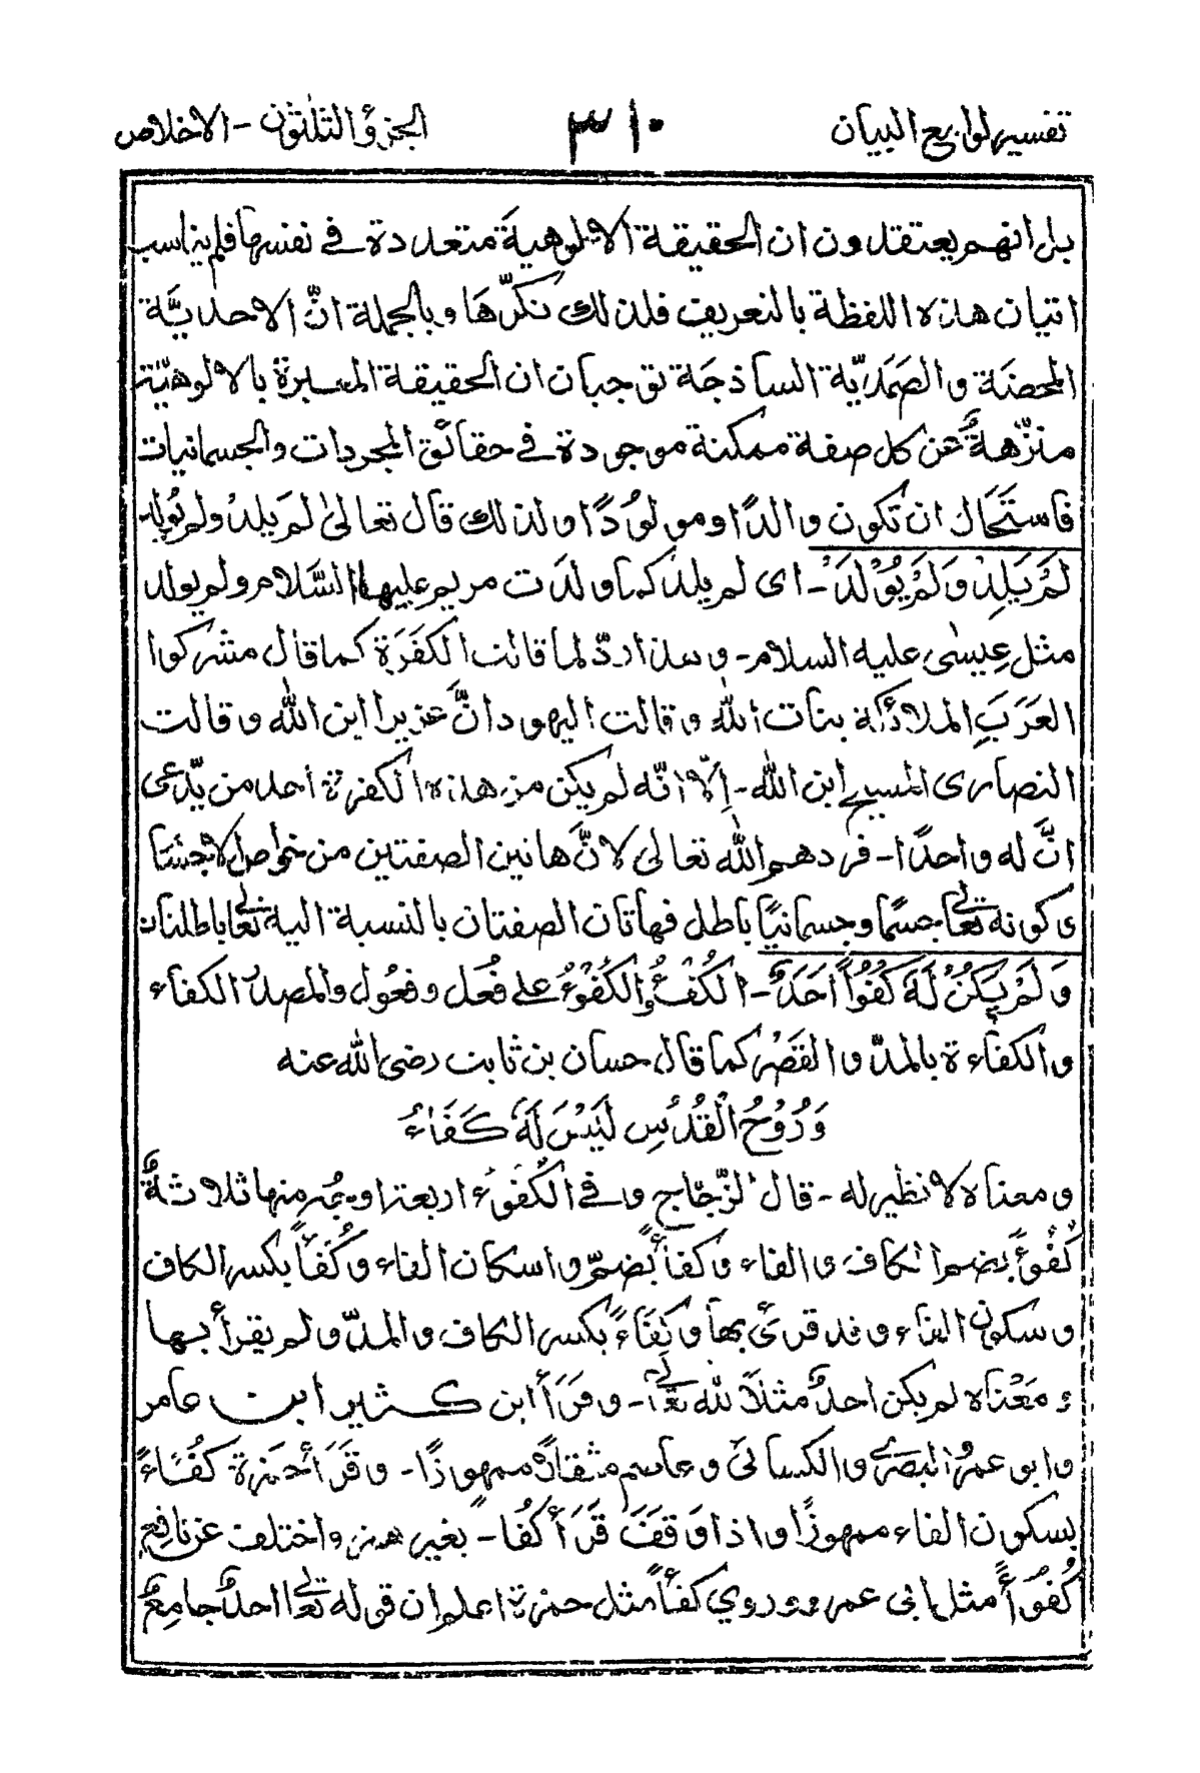 تفسير لوامع البيان ٣١٠ الجزؤ الثلثون - الاخلاص
بل انهم يعتقدون ان الحقيقة الالوهية متعددة في نفسها فلم يناسب
اتيان هذه اللفظة بالتعريف فلذلك نكرّها وبالجملة انّ الاحديّة
المحضة والصمديّة الساذجة توجبان ان الحقيقة المعبرة بالالوهيّة
منزّهةٌ عن كل صفة ممكنة موجودة في حقائق المجردات والجسمانيات
فاستحال ان تكون والدًا ومولودًا ولذلك قال تعالىٰ لم يلد ولم يولد
لَمْ يَلِدْ وَلَمْ يُوْلَدْ - اى لم يلد كما ولدت مريم عليها السّلام ولم يولد
مثل عيسٰى عليه السلام - وهذا ردّ لما قالت الكَفَرَة كما قال مشركوا
العَرَبِ الملائكة بنات الله وقالت اليهود انَّ عزيرا ابن الله وقالت
النصارى المسيح ابن الله - اِلّا انّه لم يكن من هذه الكفرة احد من يّدعى
انَّ له واحدًا - فردهم الله تعالىٰ لانَّ هاتين الصفتين من خواص الاجسا
ى كونه تعالىٰ جسمًا وجسمانيًا باطل فهاتان الصفتان بالنسبة اليه تعالىٰ باطلتان
وَلَمْ يَكُنْ لَّهٗ كُفُوًا اَحَدٌ - الكُفُؤُ والكُفُوْءُ على فُعُل وفعُول والمصدر الكفاء
والكفاءة بالمدّ والقصر كما قال حسان بن ثابت رضى الله عنه
وَرُوْحُ الْقُدُسِ لَيْسَ لَهٗ كَفَاءُ
ومعناه لا نظير له - قال الزّجّاج وفي الكُفُوْء اربعة اوجهٍ منها ثلاثةٌ
كُفُؤًا بضم الكاف والفاء وكفأً بضمّ واسكان الفاء وكُفَأً بكسر الكاف
وسكون الفاء وقد قرئ بها وكفَاءً بكسر الكاف والمدّ ولم يقرأ بها
ومَعْناه لم يكن احدٌ مثلاً لله تعالىٰ - وقَرَأ ابن كثير ابن عامر
وابو عمرو البصري والكسائى وعاصم مثقلاً مهموزًا - وقَرَأ حمزة كُفْاءً
بسكون الفاء مهموزًا واذا وَقَفَ قَرَأ كُفَا - بغير همز واختلف عن نافع
كُفُؤًا مثل ابى عمرو وروي كفأً مثل حمزة اعلم ان قوله تعالىٰ احدٌ جامعٌ